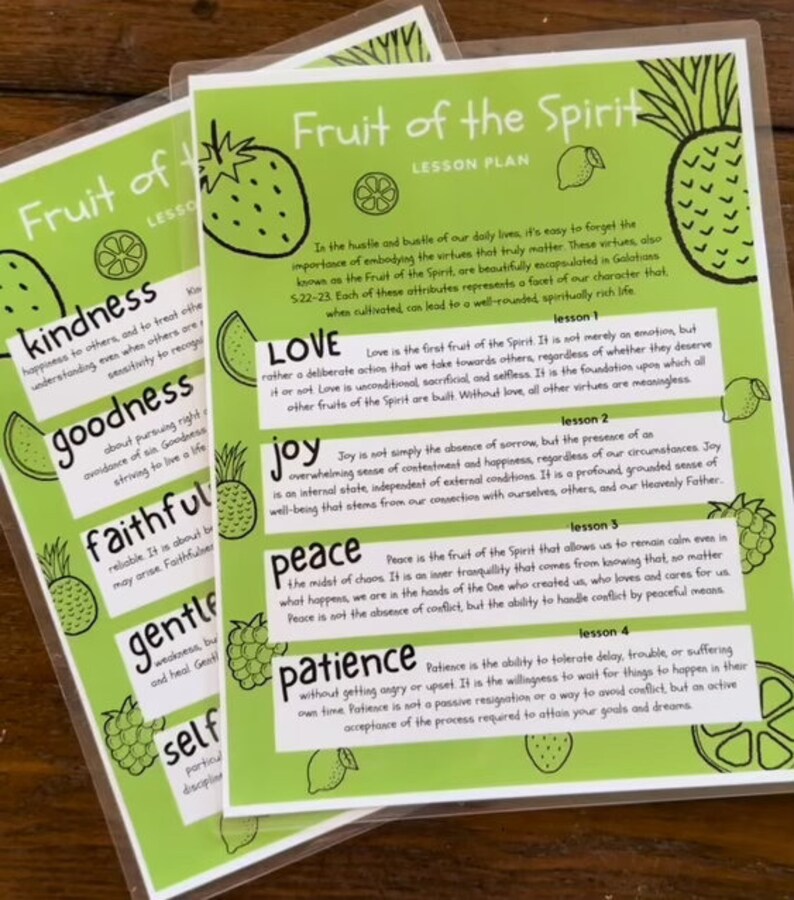 Fruit of the Spirit
LESSON PLAN
In the hustle and bustle of our daily lives, it's easy to forget the
importance of embodying the virtues that truly matter. These virtues, also
known as the Fruit of the Spirit, are beautifully encapsulated in Galatians
5:22-23. Each of these attributes represents a facet of our character that,
when cultivated, can lead to a well-rounded, spiritually rich life.
lesson 1
LOVE Love is the first fruit of the Spirit. It is not merely an emotion, but
rather a deliberate action that we take towards others, regardless of whether they deserve
it or not. Love is unconditional, sacrificial, and selfless. It is the foundation upon which all
other fruits of the Spirit are built. Without love, all other virtues are meaningless.
lesson 2
joy Joy is not simply the absence of sorrow, but the presence of an
overwhelming sense of contentment and happiness, regardless of our circumstances. Joy
is an internal state, independent of external conditions. It is a profound, grounded sense of
well-being that stems from our connection with ourselves, others, and our Heavenly Father.
lesson 3
peace Peace is the fruit of the Spirit that allows us to remain calm even in
the midst of chaos. It is an inner tranquillity that comes from knowing that, no matter
what happens, we are in the hands of the One who created us, who loves and cares for us.
Peace is not the absence of conflict, but the ability to handle conflict by peaceful means.
lesson 4
patience Patience is the ability to tolerate delay, trouble, or suffering
without getting angry or upset. It is the willingness to wait for things to happen in their
own time. Patience is not a passive resignation or a way to avoid conflict, but an active
acceptance of the process required to attain your goals and dreams.
Fruit of t
LESSO
kindness Kin
happiness to others, and to treat othe
understanding, even when others are
sensitivity to recogni
goodness
about pursuing right
avoidance of sin. Goodness
striving to live a life
faithful
reliable. It is about b
may arise. Faithfulne
gentle
weakness, bu
and heal. Gentl
self
particul
disciplin